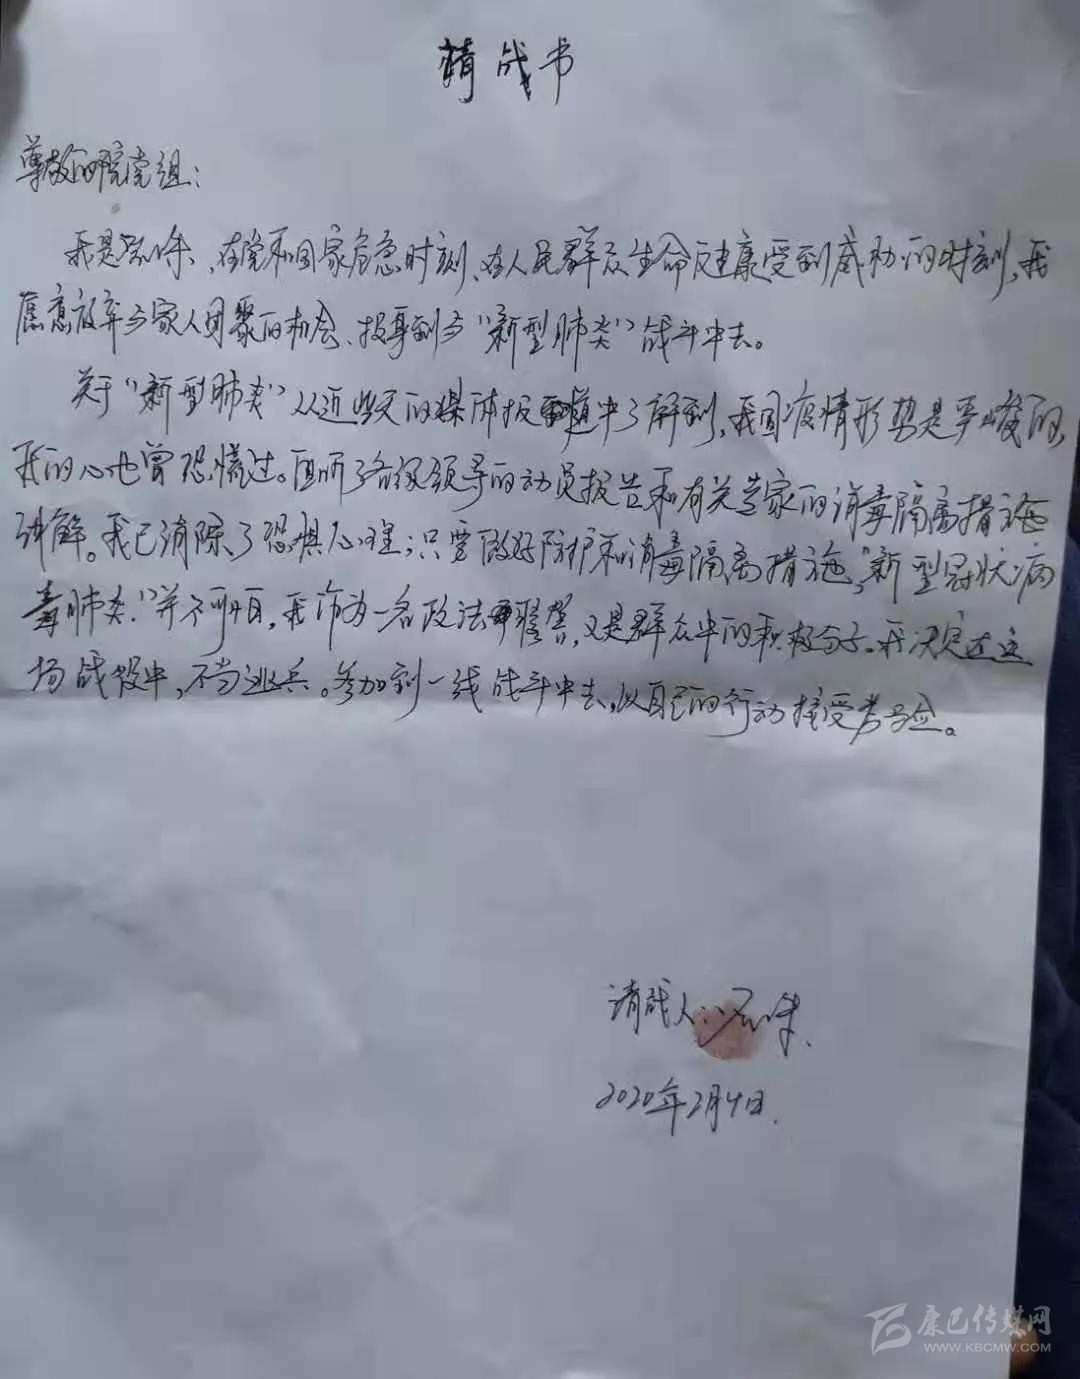 请战书
尊敬的院党组：
我是 ，在党和国家危急时刻、在人民群众生命及健康受到威胁的时刻，我
愿意放弃与家人团聚的机会、投身到与“新型肺炎”战斗中去。
关于“新型肺炎”从近些天的媒体报道中了解到，我国疫情形势是严峻的，
我的心也曾恐慌过。 听了各级领导的动员报告和有关专家的消毒隔离措施
讲解。我已消除了恐惧心理；只要做好防护和消毒隔离措施，“新型冠状病
毒肺炎”并不可怕，我作为一名政法 警，又是群众中的积极分子。我决定 这
场战役中，不当逃兵。参加到一线战斗中去，以自己的行动接受考验。
请战人：
2020年2月4日.
康巴传媒网
WWW.KBCMW.COM